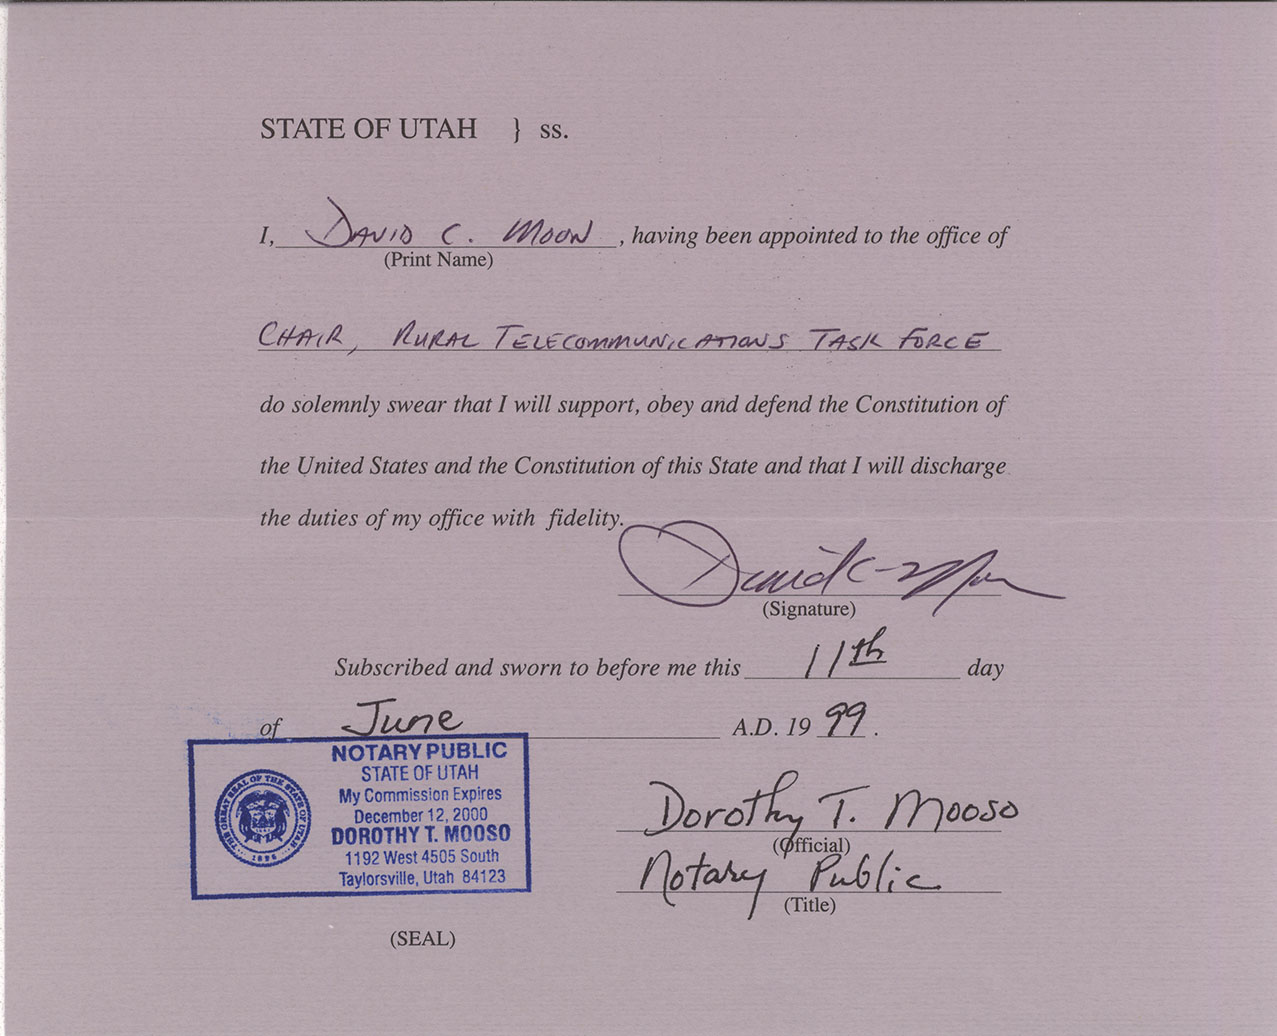 STATE OF UTAH } ss.
I, DAVID C. MOON, having been appointed to the office of
(Print Name)
CHAIR, RURAL TELECOMMUNICATIONS TASK FORCE
do solemnly swear that I will support, obey and defend the Constitution of
the United States and the Constitution of this State and that I will discharge
the duties of my office with fidelity.
David C Moon
(Signature)
Subscribed and sworn to before me this 11th day
of June A.D. 19 99.
NOTARY PUBLIC
STATE OF UTAH
My Commission Expires
December 12, 2000
DOROTHY T. MOOSO
1192 West 4505 South
Taylorsville, Utah 84123
THE GREAT SEAL OF THE STATE OF UTAH
1896
Dorothy T. Mooso
(Official)
Notary Public
(Title)
(SEAL)